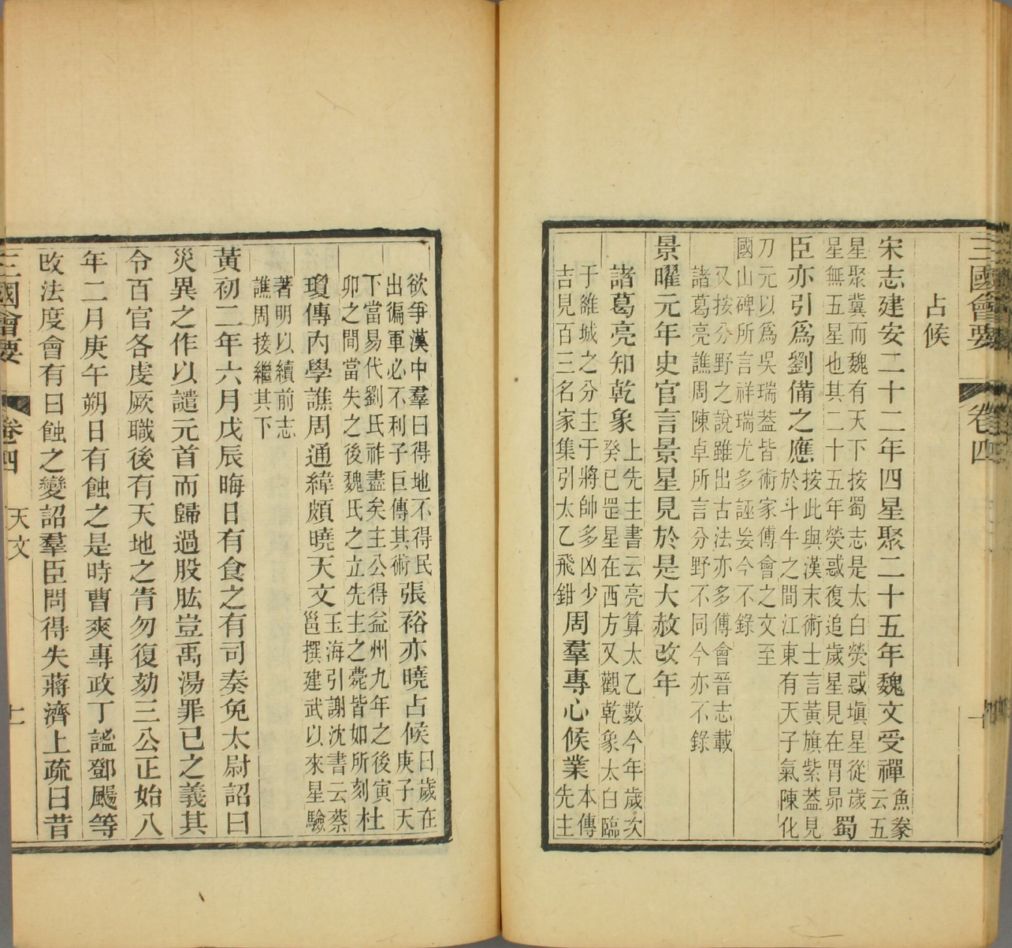 三國會要 卷四
占候
宋志建安二十二年四星聚二十五年魏文受禪魚豢云五
星聚冀而魏有天下按蜀志是太白熒惑塡星從歲
星無五星也其二十五年熒惑復追歲星見在胃昴蜀
臣亦引爲劉備之應按此與漢末術士言黃旗紫葢見
於斗牛之間江東有天子氣陳化
刀元以爲吳瑞葢皆術家傅會之文至
國山碑所言祥瑞尤多誣妄今不錄
又按分野之說雖出古法亦多傅會晉志載
諸葛亮譙周陳卓所言分野不同今亦不錄
景曜元年史官言景星見於是大赦改年
諸葛亮知乾象上先主書云亮算太乙數今年歲次
癸巳罡星在西方又觀乾象太白臨
于雒城之分主于將帥多凶少
吉見百三名家集引太乙飛鉗周羣專心候業本傳先主
欲爭漢中羣曰得地不得民
出徧軍必不利子巨傳其術張裕亦曉占候曰歲在庚子天
下當易代劉氏祚盡矣主公得益州九年之後寅
卯之間當失之後魏氏之立先主之薨皆如所刻杜
瓊傳內學譙周通緯頗曉天文玉海引謝沈書云蔡
邕撰建武以來星驗
著明以續前志
譙周接繼其下
黃初二年六月戊辰晦日有食之有司奏免太尉詔曰
災異之作以譴元首而歸過股肱豈禹湯罪已之義其
令百官各虔厥職後有天地之眚勿復劾三公正始八
年二月庚午朔日有蝕之是時曹爽專政丁謐鄧颺等
改法度會有日蝕之變詔羣臣問得失蔣濟上疏曰昔
三國會要 卷四 天文 十一